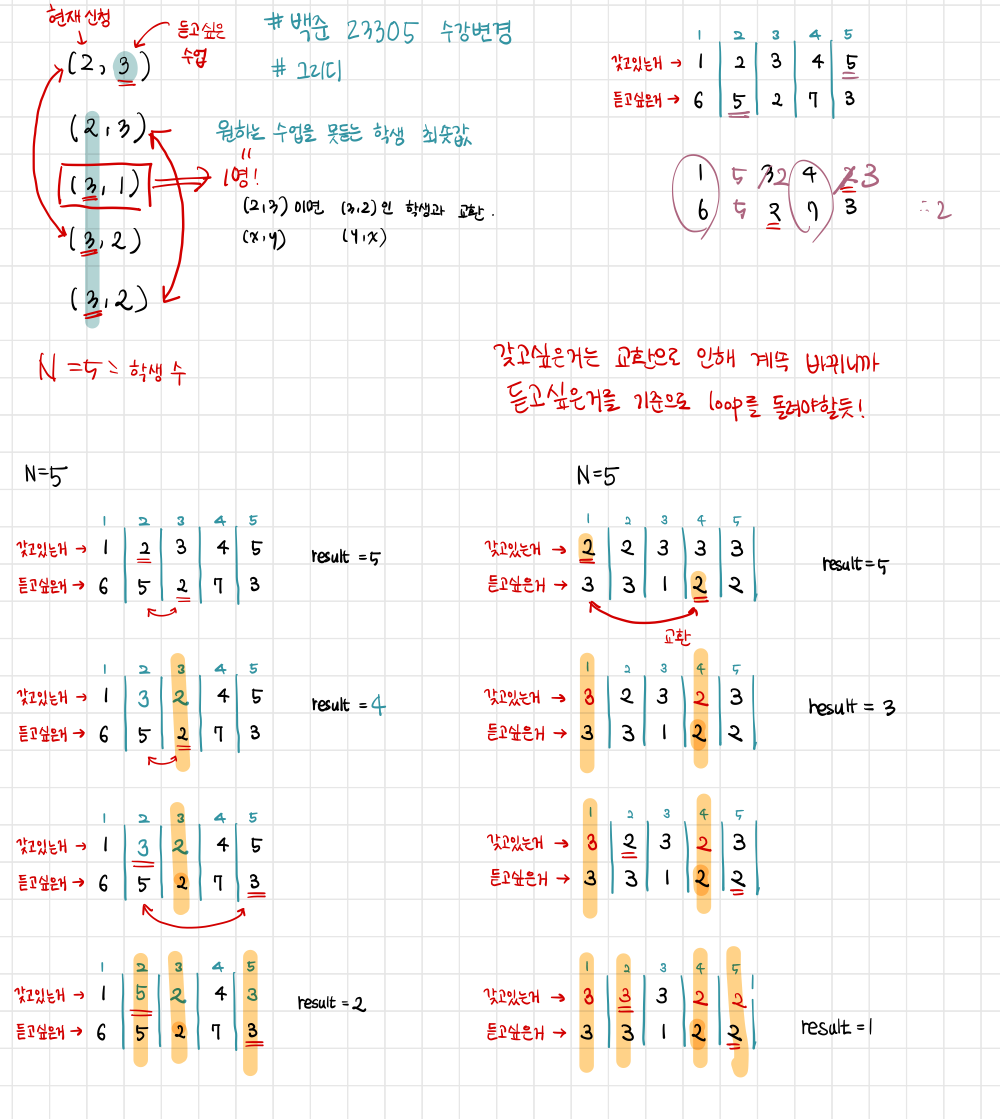 # 백준 23305 수강변경
# 그리디
현재 신청
듣고싶은
수업
(2, 3)
(2, 3)
(3, 1)
(3, 2)
(3, 2)
원하는 수업을 못듣는 학생 최솟값
"
1명!
(2,3) 이면 (3,2)인 학생과 교환.
(x,y) (y,x)
N = 5 = 학생 수
1 2 3 4 5
갖고있는거 → 1 2 3 4 5
듣고싶은거 → 6 5 2 7 3
1 5 3 2 4 2 3
6 5 2 7 3
= 2
갖고싶은거는 교환으로 인해 계속 바뀌니까
듣고싶은거를 기준으로 loop를 돌려야할듯!
N=5
1 2 3 4 5
갖고있는거 → 1 2 3 4 5
듣고싶은거 → 6 5 2 7 3
result = 5
1 2 3 4 5
갖고있는거 → 1 3 2 4 5
듣고싶은거 → 6 5 2 7 3
result = 4
1 2 3 4 5
갖고있는거 → 1 3 2 4 5
듣고싶은거 → 6 5 2 7 3
1 2 3 4 5
갖고있는거 → 1 5 2 4 3
듣고싶은거 → 6 5 2 7 3
result = 2
N=5
1 2 3 4 5
갖고있는거 → 2 2 3 3 3
듣고싶은거 → 3 3 1 2 2
교환
result=5
1 2 3 4 5
갖고있는거 → 3 2 3 2 3
듣고싶은거 → 3 3 1 2 2
result = 3
1 2 3 4 5
갖고있는거 → 3 2 3 2 3
듣고싶은거 → 3 3 1 2 2
1 2 3 4 5
갖고있는거 → 3 3 3 2 2
듣고싶은거 → 3 3 1 2 2
result=1